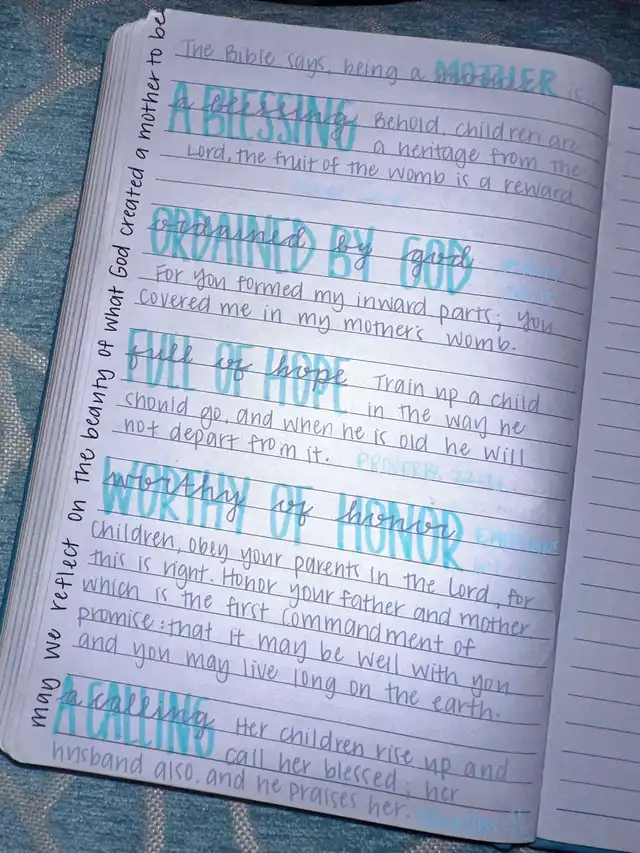 may we reflect on the beauty of what God created a mother to be
The Bible says, being a MOTHER is
A BLESSING
a blessing
Behold, children are
a heritage from the
Lord, the fruit of the womb is a reward.
ORDAINED BY GOD
ordained by god
For you formed my inward parts; you
covered me in my mother's womb.
FULL OF HOPE
full of hope
Train up a child
in the way he
should go, and when he is old he will
not depart from it.
PROVERBS
WORTHY OF HONOR
worthy of honor
Children, obey your parents in the Lord, for
this is right. Honor your father and mother
which is the first commandment of
promise: that it may be well with you
and you may live long on the earth.
A CALLING
a calling
Her children rise up and
call her blessed; her
husband also, and he praises her.